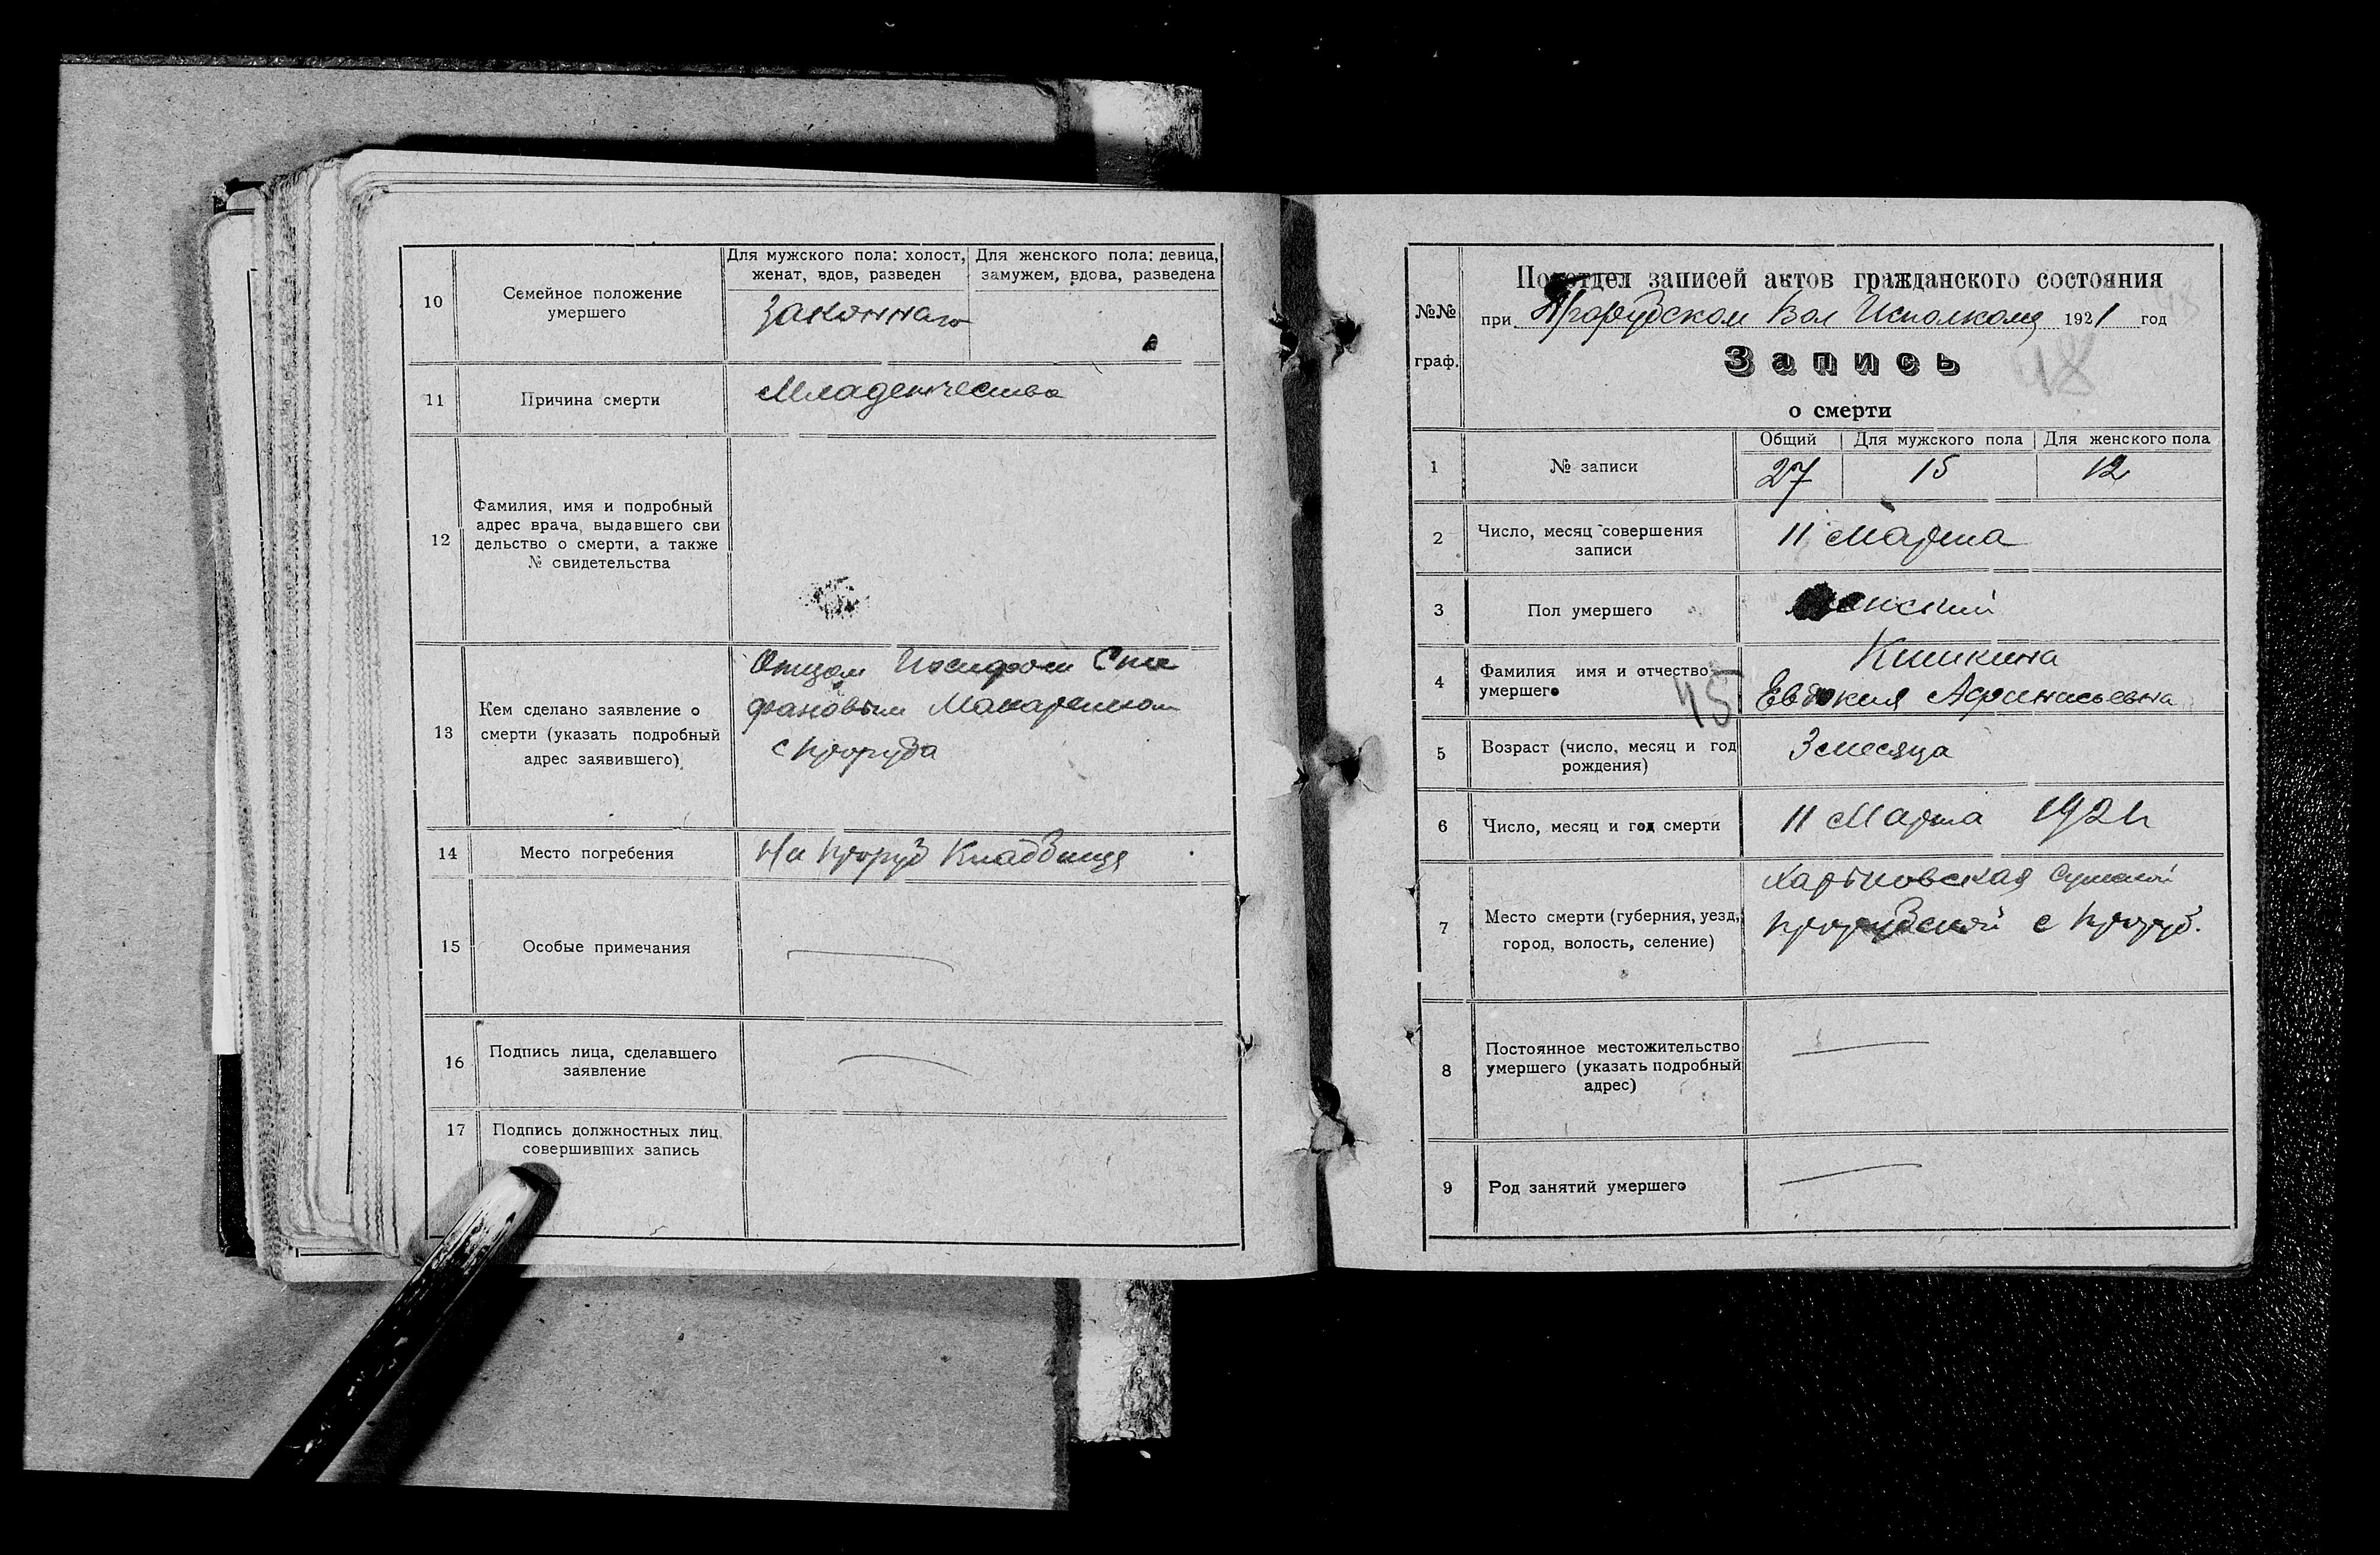 10
Семейное положение
умершего
Для мужского пола: холост,
женат, вдов, разведен
Для женского пола: девица,
замужем, вдова, разведена
Законнаго
11
Причина смерти
Младенчества
12
Фамилия, имя и подробный
адрес врача, выдавшего сви
дельство о смерти, а также
№ свидетельства
13
Кем сделано заявление о
смерти (указать подробный
адрес заявившего)
Отцом Иосифом Сте
фановым Макаренком
с Проруба
14
Место погребения
На Проруб Кладбище
15
Особые примечания
16
Подпись лица, сделавшего
заявление
17
Подпись должностных лиц,
совершивших запись
№№
граф.
Подотдел записей актов гражданского состояния
при Прорубском Вол Исполкоме 1921 год
48
Запись
о смерти
1
№ записи
Общий
Для мужского пола
Для женского пола
27
15
12
2
Число, месяц совершения
записи
11 Марта
3
Пол умершего
женский
4
Фамилия имя и отчество
умершего
45
Кишкина
Евдокия Афанасьевна
5
Возраст (число, месяц и год
рождения)
3 месяца
6
Число, месяц и год смерти
11 Марта 1921
7
Место смерти (губерния, уезд,
город, волость, селение)
Харьковская Сумской
Прорубской с Проруб.
8
Постоянное местожительство
умершего (указать подробный
адрес)
9
Род занятий умершего